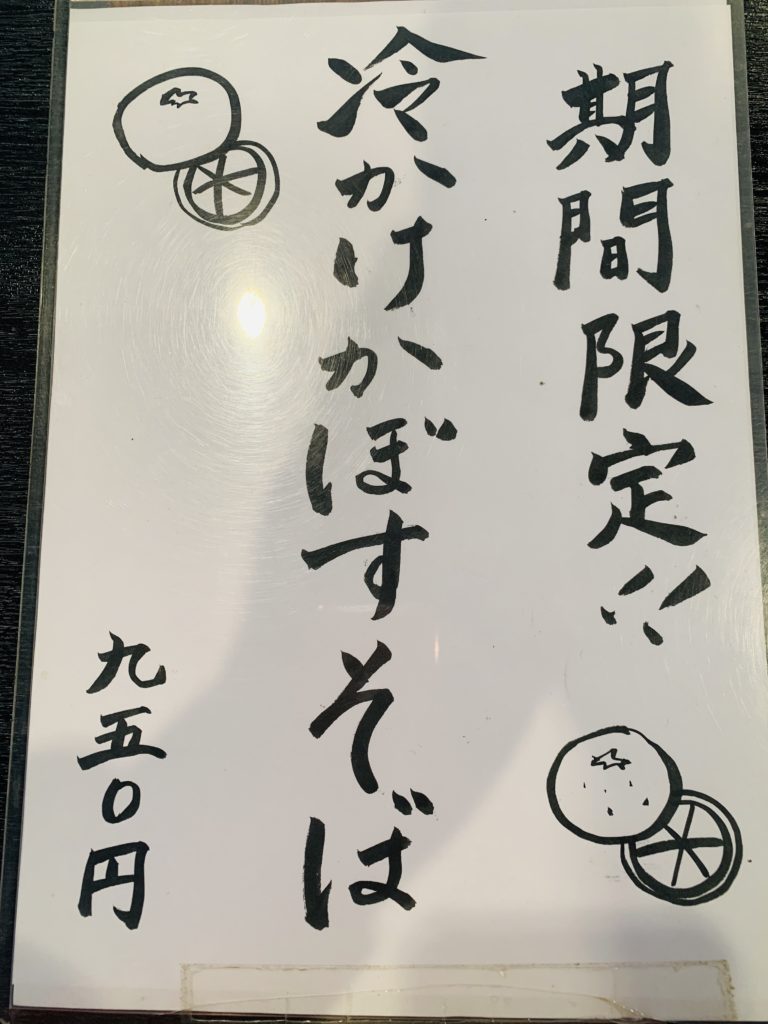 期間限定!!
冷かけかぼすそば
九五0円